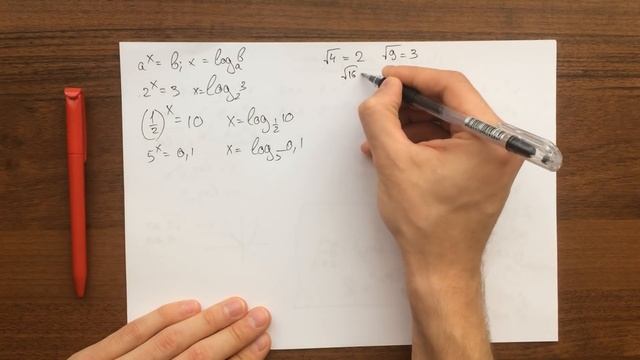 aˣ = b; x = logₐb
2ˣ = 3 x = log₂3
(1/2)ˣ = 10 x = log_{1/2} 10
5ˣ = 0,1 x = log₅ 0,1
√4 = 2 √9 = 3
√16